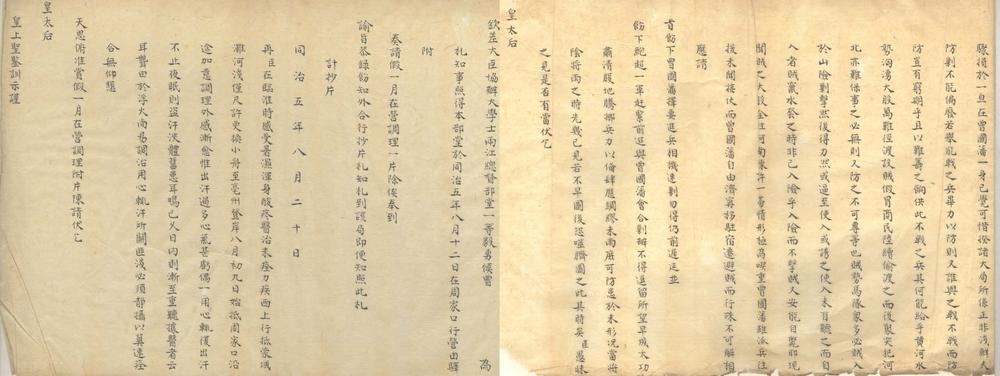 隳損於一旦在曾國藩一身已覺可惜揆諸大局所係正非淺鮮夫
防剿不能偏廢若舉能戰之兵畢力以防則又誰與之戰不戰而防
防豈有窮期乎且以難籌之餉供此不戰之兵其何能給乎黃河水
勢洶湧大股萬難徑渡設賊假冒商民陸續偷渡之而後聚突犯河
北亦難保事之必無則又防之不可專恃也賊勢馬隊衆多必賊入
於山險剿擊然後得力然或逼至使入或誘之使入未有聽之而自
入者賊竄水發之時非已入險乎入險而不擊賊又安能自斃耶現
聞賊之大股全在河南東許一帶情形極為喫重曾國藩雖派兵往
援未聞接仗而曾國藩自由濟甯移駐宿遷避賊而行殊不可解相
應請
旨飭下曾國藩擇要進兵相機速剿勿得仍前遷延並
飭下鮑超一軍赴豫前進與曾國藩會合剿辦不得逗留所望早成大功
肅清腹地騰挪兵力以備肆應綢繆未雨庶可防患於未形況當將
陰將雨之時先幾已見若不早圖後恐噬臍圖之此其時矣臣愚昧
之見是否有當伏乞
皇太后
欽差大臣協辦大學士兩江總督部堂一等毅勇侯曾 為
札知事照得本部堂於同治五年八月十二日在周家口行營由驛
附
奏請假一月在營調理一片除俟奉到
諭旨恭錄飭知外合行抄片札知札到該局即便知照此札
計抄片
同治五年八月二十日
再臣在臨淮時感受暑濕渾身酸疼醫治未痊力疾西上行抵蒙城
灘河淺僅尺許更換小舟至亳州登岸八月初九日始抵周家口沿
途加意調理外感漸愈惟出汗過多心氣甚虧偶一用心輒復出汗
不止夜眠則盜汗浹體舊患耳鳴已久日內則漸至重聽據醫者云
耳聾由於浮火尚易調治用心輒汗所關匪淺必須靜攝以冀速痊
合無仰懇
天恩俯准賞假一月在營調理附片陳請伏乞
皇太后
皇上聖鑒訓示謹